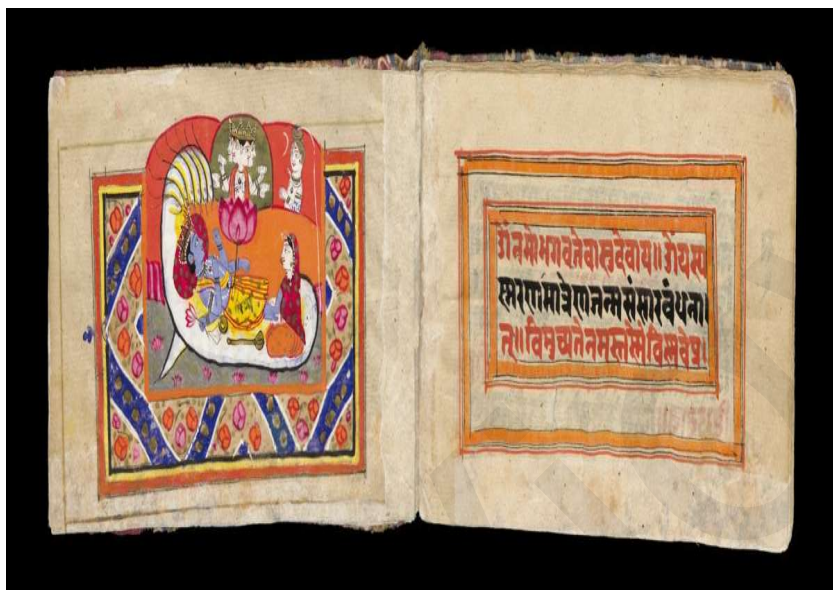 ॐनमोभगवतेवासुदेवाय॥ॐयस्य
स्मरणमात्रेणजन्मसंसारबंधना
त्॥विमुच्यतेनमस्तस्मैविष्णवेप्र